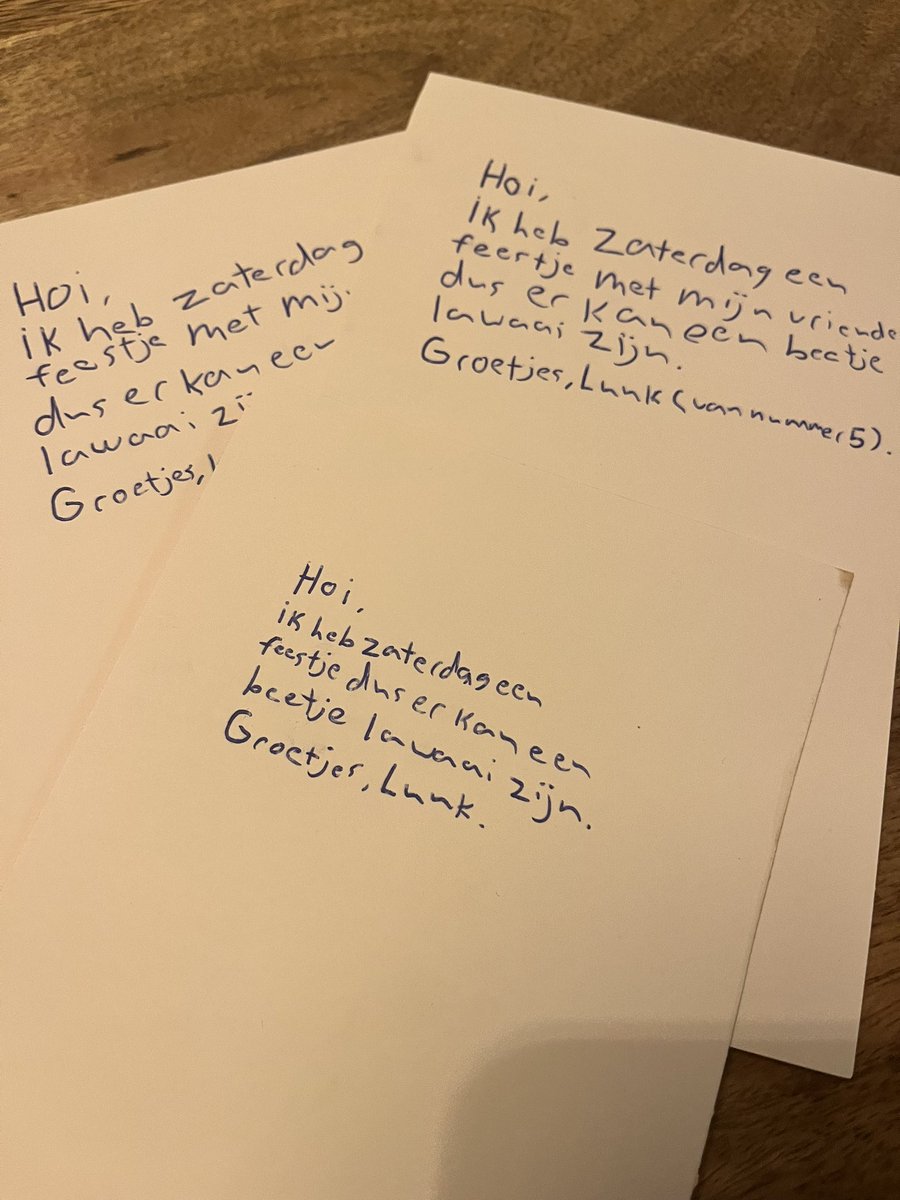 Hoi,
ik heb zaterdag
feestje met mij
dus er kan een
lawaai zi
Groetjes,
Hoi,
ik heb zaterdag een
feestje met mijn vriende
dus er kan een beetje
lawaai zijn.
Groetjes, Luuk (van nummer 5).
Hoi,
ik heb zaterdag een
feestje dus er kan een
beetje lawaai zijn.
Groetjes, Luuk.